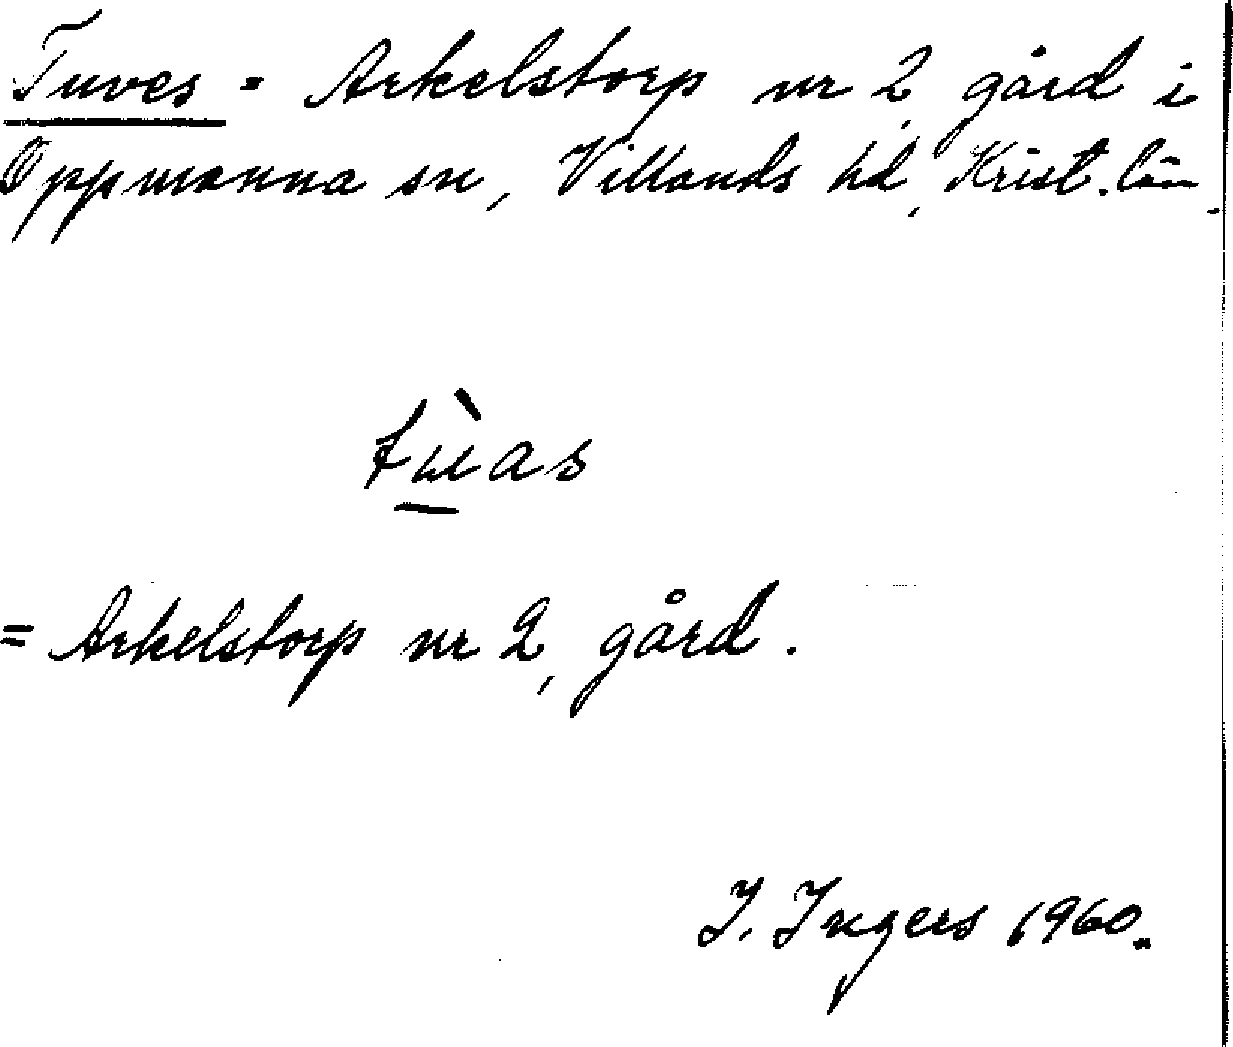 Tuves = Arkelstorp nr 2, gård i
Oppmanna sn, Villands hd, Krist. län.
tùas
= Arkelstorp nr 2, gård.
I. Ingers 1960.